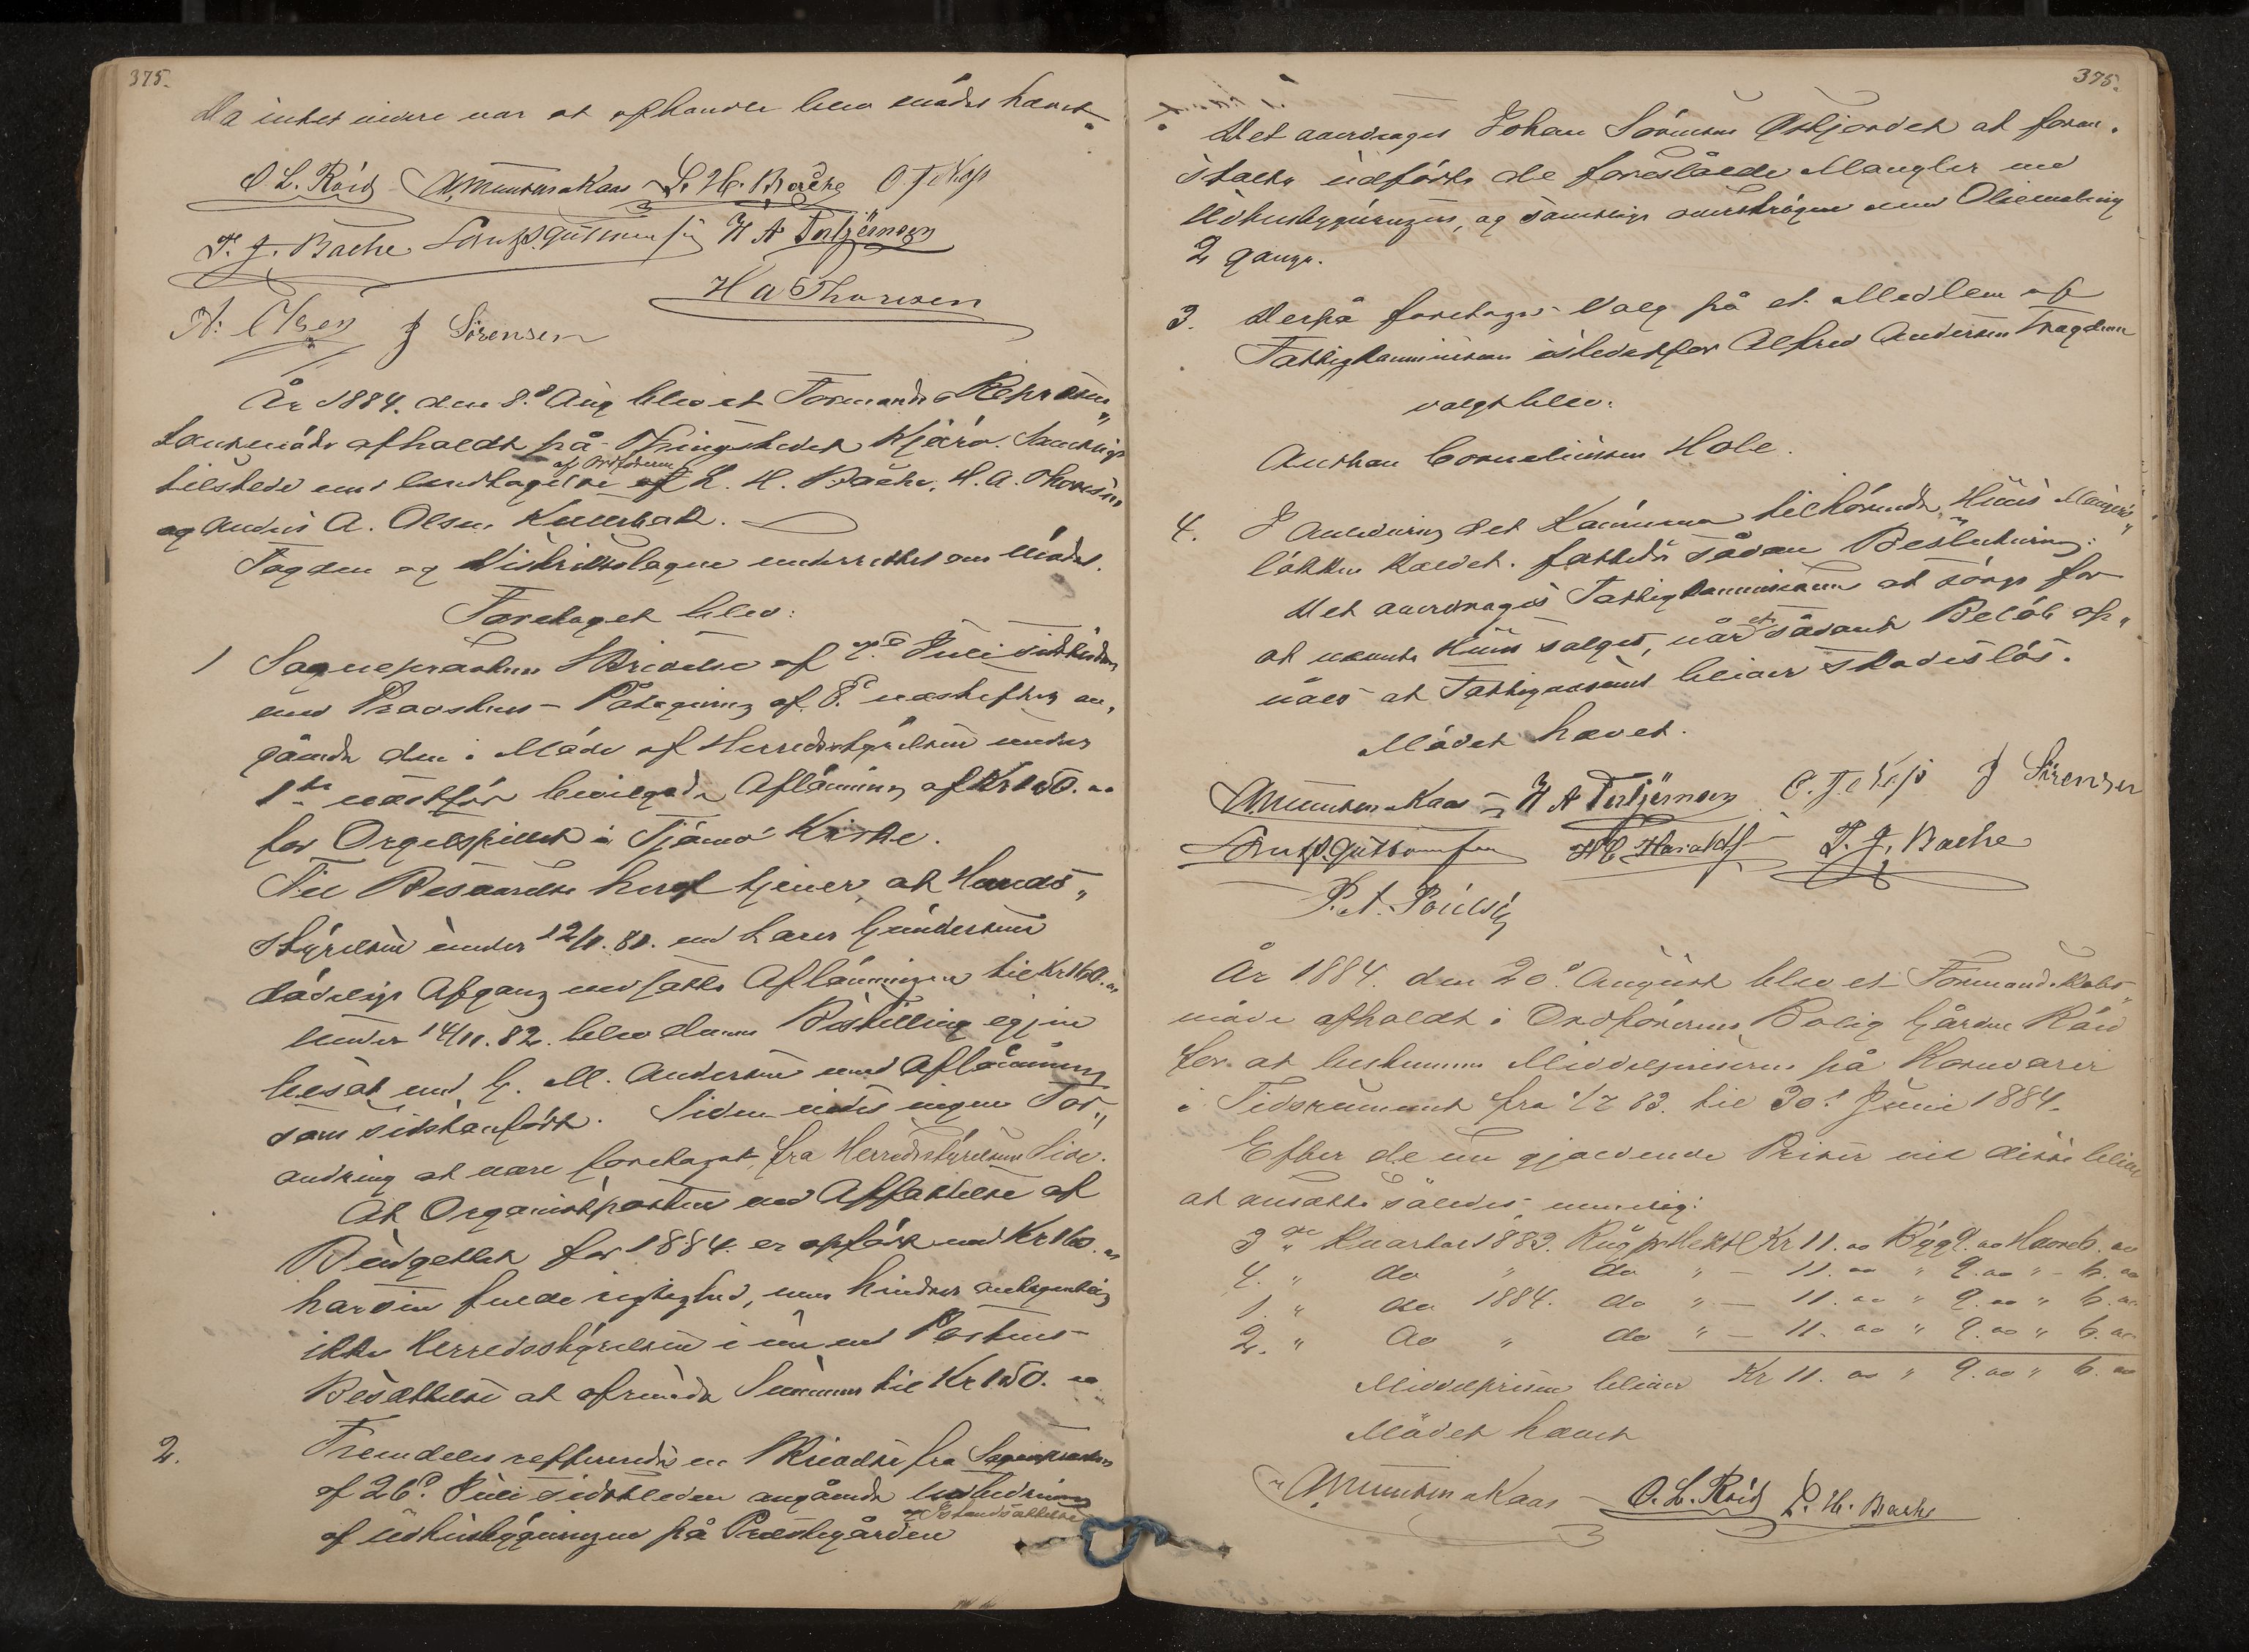 375.
Da intet videre var at afhandle blev mødet hævet.
O. L. Røed A. Muntersen Kaas L. H. Bache O. J. Skop
T. J. Bache H A Fertjernsen
H A Thoresen
A. Olsen J Sörensen
År 1884. den 8de Aug blev et Formands & Repræsen„
tantmøde afholdt på Thingstedet Kjæro. Samtlige
tilstede med Undtagelse af Ordføreren L. H. Bache, H. A. Thoresen
og Anders A. Olsen
Fogden og Distriktslægen underrettet om Mødet.
Foretaget blev:
1 Sognepræstens Skrivelse af 7de Juli sidstleden
med Provstens Påtegning af 8de næstefter an„
gående den i Møde af Herredsstyrelsen under
1ste næstfør bevilgede Aflønning af Kr 150.00
for Orgelspillet i Tjømø Kirke.
Til Besvarelse heraf tjener, at Herreds„
styrelsen under 12/11. 81. ved Lærer Gundersens
dødelige Afgang nedsatte Aflønningen til Kr 160.00
Under 14/11. 82. blev denne Bestilling igjen
besat med G. M. Andersen med Aflønning
som sidstanført. Siden vides ingen For„
andring at være foretaget, fra Herredsstyrelsens Side.
At Organistposten ved Affattelse af
Budgettet for 1884. er opført med Kr 160.00
har sin fulde rigtighed, men hindrer antagentlig
ikke Herredsstyrelsen i nu ved Postens
Besættelse at afrunde Summen til Kr 150.00
2. Fremdeles reffereredes en Skrivelse fra Sognepræsten
af 26de Juli sidstleden angående Udbedring
og Istandsættelse
af Udhusbygningen på Præstegården
375.
Det overdrages Johan Sörensen Østjordet at foran„
stalte udført de foreslåede Mangler ved
Udhusbygningen, og samtlige overstrøgne med Oliemaling
2 gange.
3. Derpå foretoges Valg på et Medlem af
Fattigkommisionen istedetfor Alfred Andersen Fragdenn
valgt blev:
Anthon Corneliussen Hole.
4. I Anledning det Kommunen tilhørende Huus
løkken kaldet. fattedes sådan Beslutning:
Det overdrages Fattigkommisionen at sørge for
at nævnte Huus salges, når et sådant Beløb op„
nåes at Fattigvæsenet bliver skadesløs.
Mødet hævet.
A. Muntersen Kaas H A Fertjernsen O. J. Skop J Sörensen
H C Haralds T. J. Bache
P. A. Poulsen
År 1884. den 20de August blev et Formandskabs„
møde afholdt i Ordførerens Bolig Gården Røed
for at bestemme Middelpriserne på Kornvarer
i Tidsrummet fra 1/7 83. til 30te Juni 1884.
Efter de nu gjældende Priser vil disse blive
at ansætte således, nemlig:
3die Kvartal 1883. Rug pr Hektl Kr 11.00 Byg 9.00 Havre 6.00
4. „ do „ do „ — 11.00 „ 9.00 „ 6.00
1. „ do 1884. do „ — 11.00 „ 9.00 „ 6.00
2. „ do „ do „ — 11.00 „ 9.00 „ 6.00
Middelprisen bliver Kr 11.00 „ 9.00 „ 6.00
Mødet hævet
A. Muntersen Kaas O. L. Røed L. H. Bache